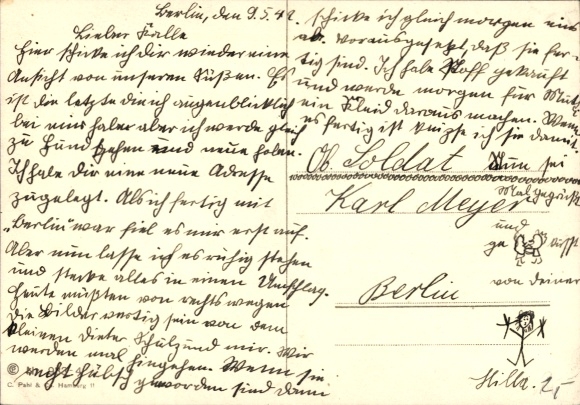 Berlin, den 9.5.42.
Lieber Kalle
hier schicke ich dir wieder eine
Ansicht von unseren Süßen. Es
ist die letzte die ich augenblicklich
bei uns habe aber ich werde gleich
zu Hund gehen und neue holen.
Ich habe dir eine neue Adresse
zugelegt. Als ich fertig mit
„Berlin" war fiel es mir erst auf.
Aber nun lasse ich es ruhig stehen
und stecke alles in einen Umschlag.
Heute müßten von rechts wegen
die Bilder fertig sein von dem
kleinen Dieter Schulz und mir. Wir
werden mal hingehen. Wenn sie
recht hübsch geworden sind dann
schicke ich gleich morgen eins
ab. Vorausgesetzt, daß sie fer-
tig sind. Ich habe Stoff gekauft
und werde morgen für Mutti
ein Kleid daraus machen. Wenn
es fertig ist knipse ich sie damit.
Nun sei
Mal gegrüßt
und
ge küsst
von deiner
Hilla.
Ob. Soldat
Karl Meyer
Berlin
© C. Pahl & Hamburg 11
15